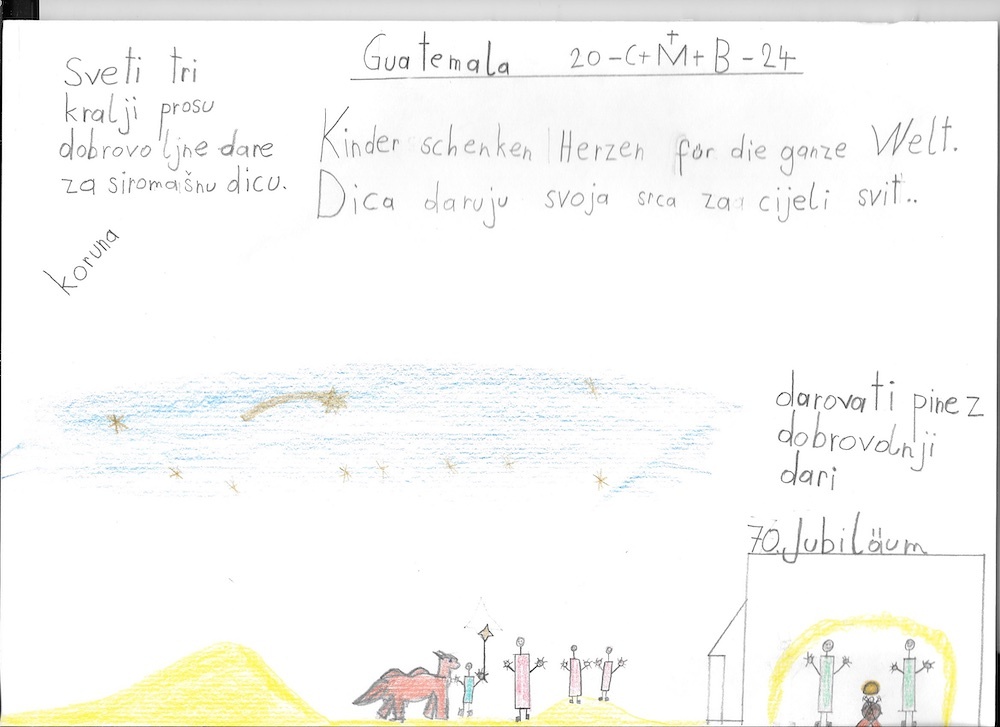 Guatemala 20-C+M+B-24
Sveti tri
kralji prosu
dobrovoljne dare
za siromašnu dicu.
Kinder schenken Herzen for die ganze Welt.
Dica daruju svoja srca za cijeli svit..
koruna
darovati pinez
dobrovolnji
dari
70. Jubiläum